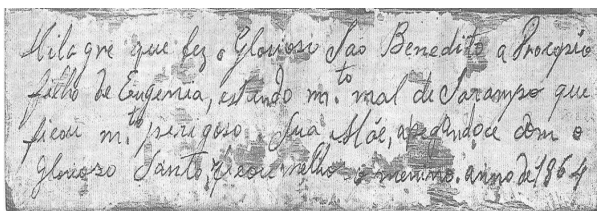 Milagre que fez o Glorioso São Benedito a Procopio
filho de Eugemia, estando m.to mal de Sarampo que
ficou m.to perigoso. Sua Mãe, apegandoce com o
Glorioso Santo, ficou melhor o menino. anno de 1864